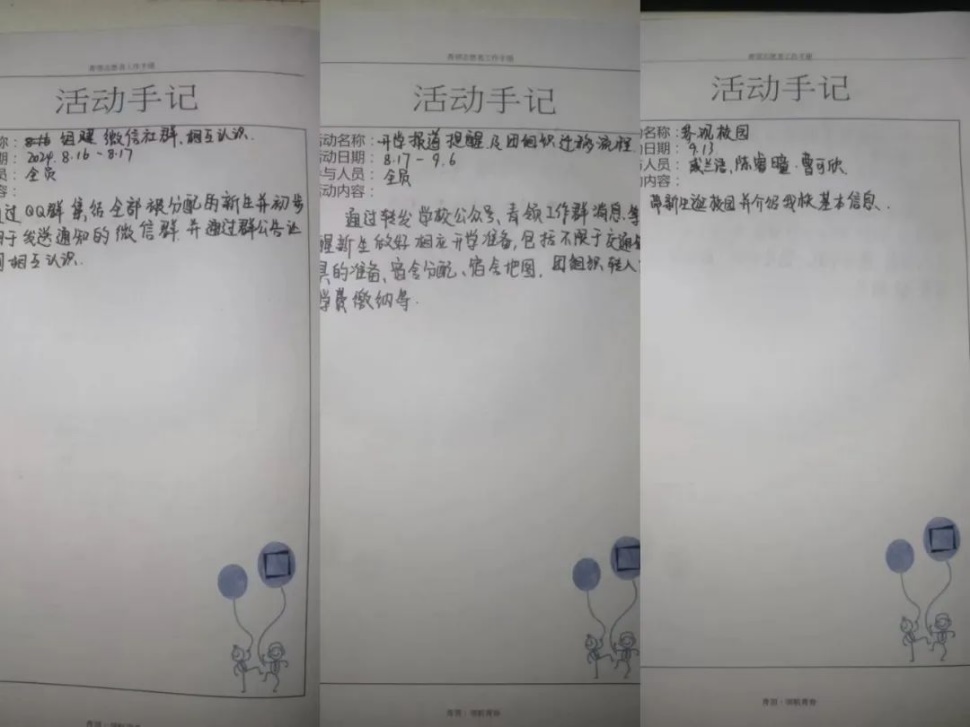 活动手记
称： 组建微信社群、相互认识.
期： 2024.8.16-8.17
员： 全员
容：
过QQ群集结全部被分配的新生并初步
用于发送通知的微信群.并通过群公告让
相互认识.
青领志愿者工作手册
活动手记
活动名称：开学报道提醒及团组织迁移流程
动日期：8.17-9.6
与人员：全员
动内容：
通过转发学校公众号、青领工作群消息.等
醒新生做好相应开学准备,包括不限于交通
具的准备、宿舍分配、宿舍地图.团组织转入
学费缴纳等.
活动手记
名称：参观校园
日期：9.13
人员：
内容：
带新生逛校园并介绍我校基本信息.